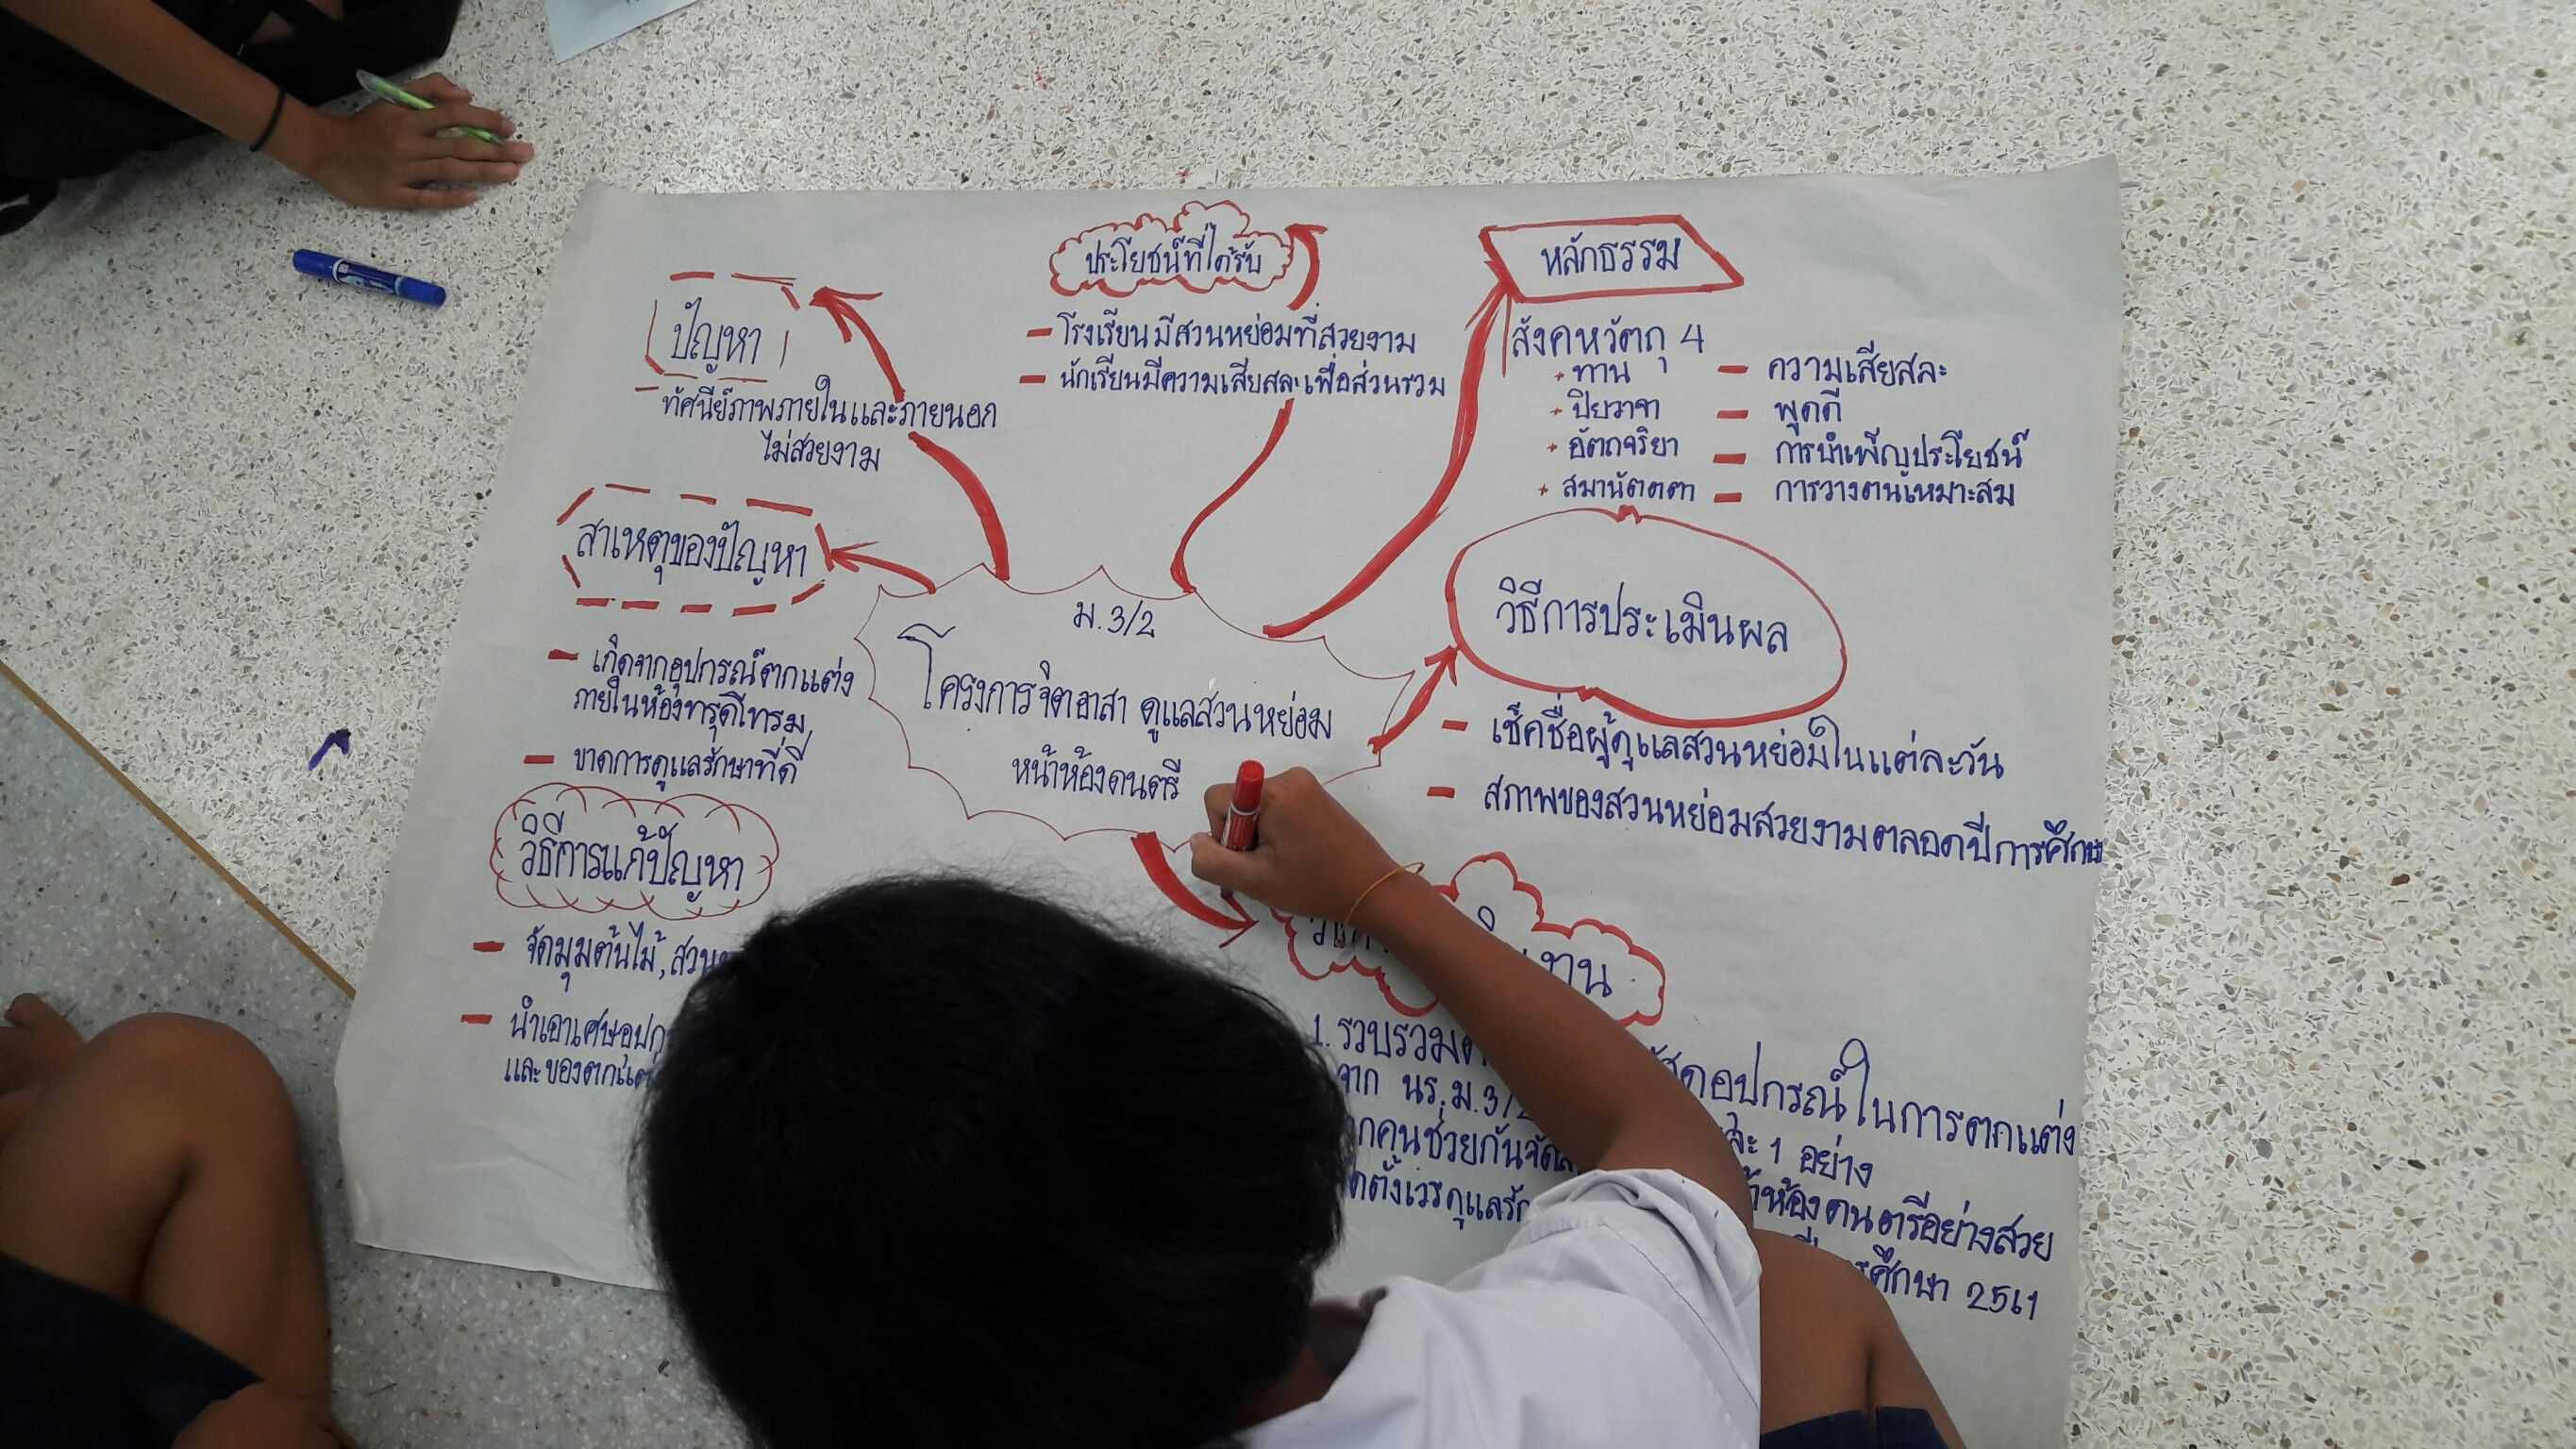 ม.3/2
โครงการจิตอาสา ดูแลสวนหย่อม
หน้าห้องดนตรี
ปัญหา
ทัศนีย์ภาพภายในและภายนอก
ไม่สวยงาม
สาเหตุของปัญหา
- เกิดจากอุปกรณ์ตกแต่ง
ภายในห้องทรุดโทรม
- ขาดการดูแลรักษาที่ดี
วิธีการแก้ปัญหา
- จัดมุมต้นไม้,
- นำเอาเศษ
และของ
ประโยชน์ที่ได้รับ
- โรงเรียนมีสวนหย่อมที่สวยงาม
- นักเรียนมีความเสียสละเพื่อส่วนรวม
หลักธรรม
สังคหวัตถุ 4
+ ทาน - ความเสียสละ
+ ปิยวาจา - พูดดี
+ อัตถจริยา - การบำเพ็ญประโยชน์
+ สมานัตตตา - การวางตนเหมาะสม
วิธีการประเมินผล
- เช็คชื่อผู้ดูแลสวนหย่อมในแต่ละวัน
- สภาพของสวนหย่อมสวยงามตลอดปีการศึกษา
1. รวบรวม อุปกรณ์ในการตกแต่ง
จาก นร.ม.3/2 ละ 1 อย่าง
คนช่วยกันจัด ห้องดนตรีอย่างสวย
ตั้งเวรดูแล ศึกษา 2561